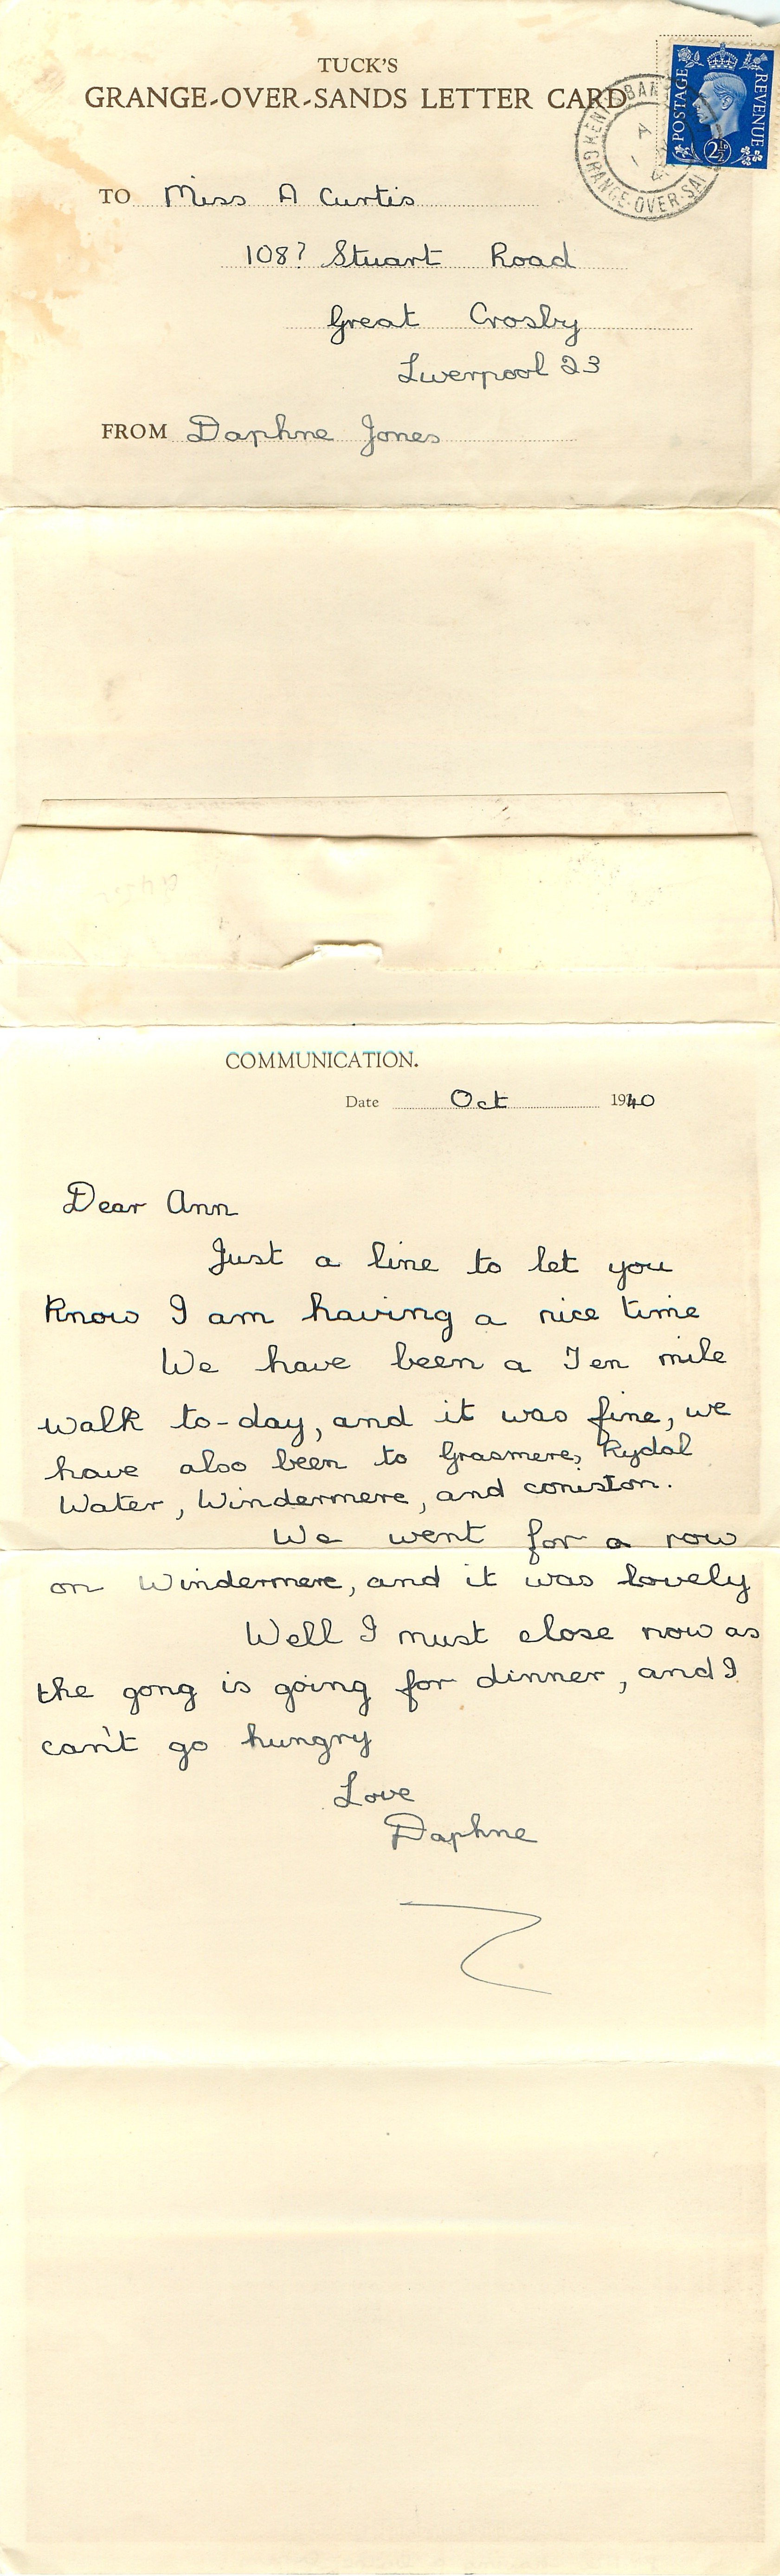 TUCK'S
GRANGE-OVER-SANDS LETTER CARD
POSTAGE
REVENUE
2½D
KENTS BANK
GRANGE-OVER-SA
A
TO Miss A Curtis
108? Stuart Road
Great Crosby
Liverpool 23
FROM Daphne Jones
COMMUNICATION.
Date Oct 1940
Dear Ann
Just a line to let you
know I am having a nice time
We have been a Ten mile
walk to-day, and it was fine, we
have also been to Grasmere, Rydal
Water, Windermere, and coniston.
We went for a row
on Windermere, and it was lovely
Well I must close now as
the gong is going for dinner, and I
can't go hungry
Love
Daphne